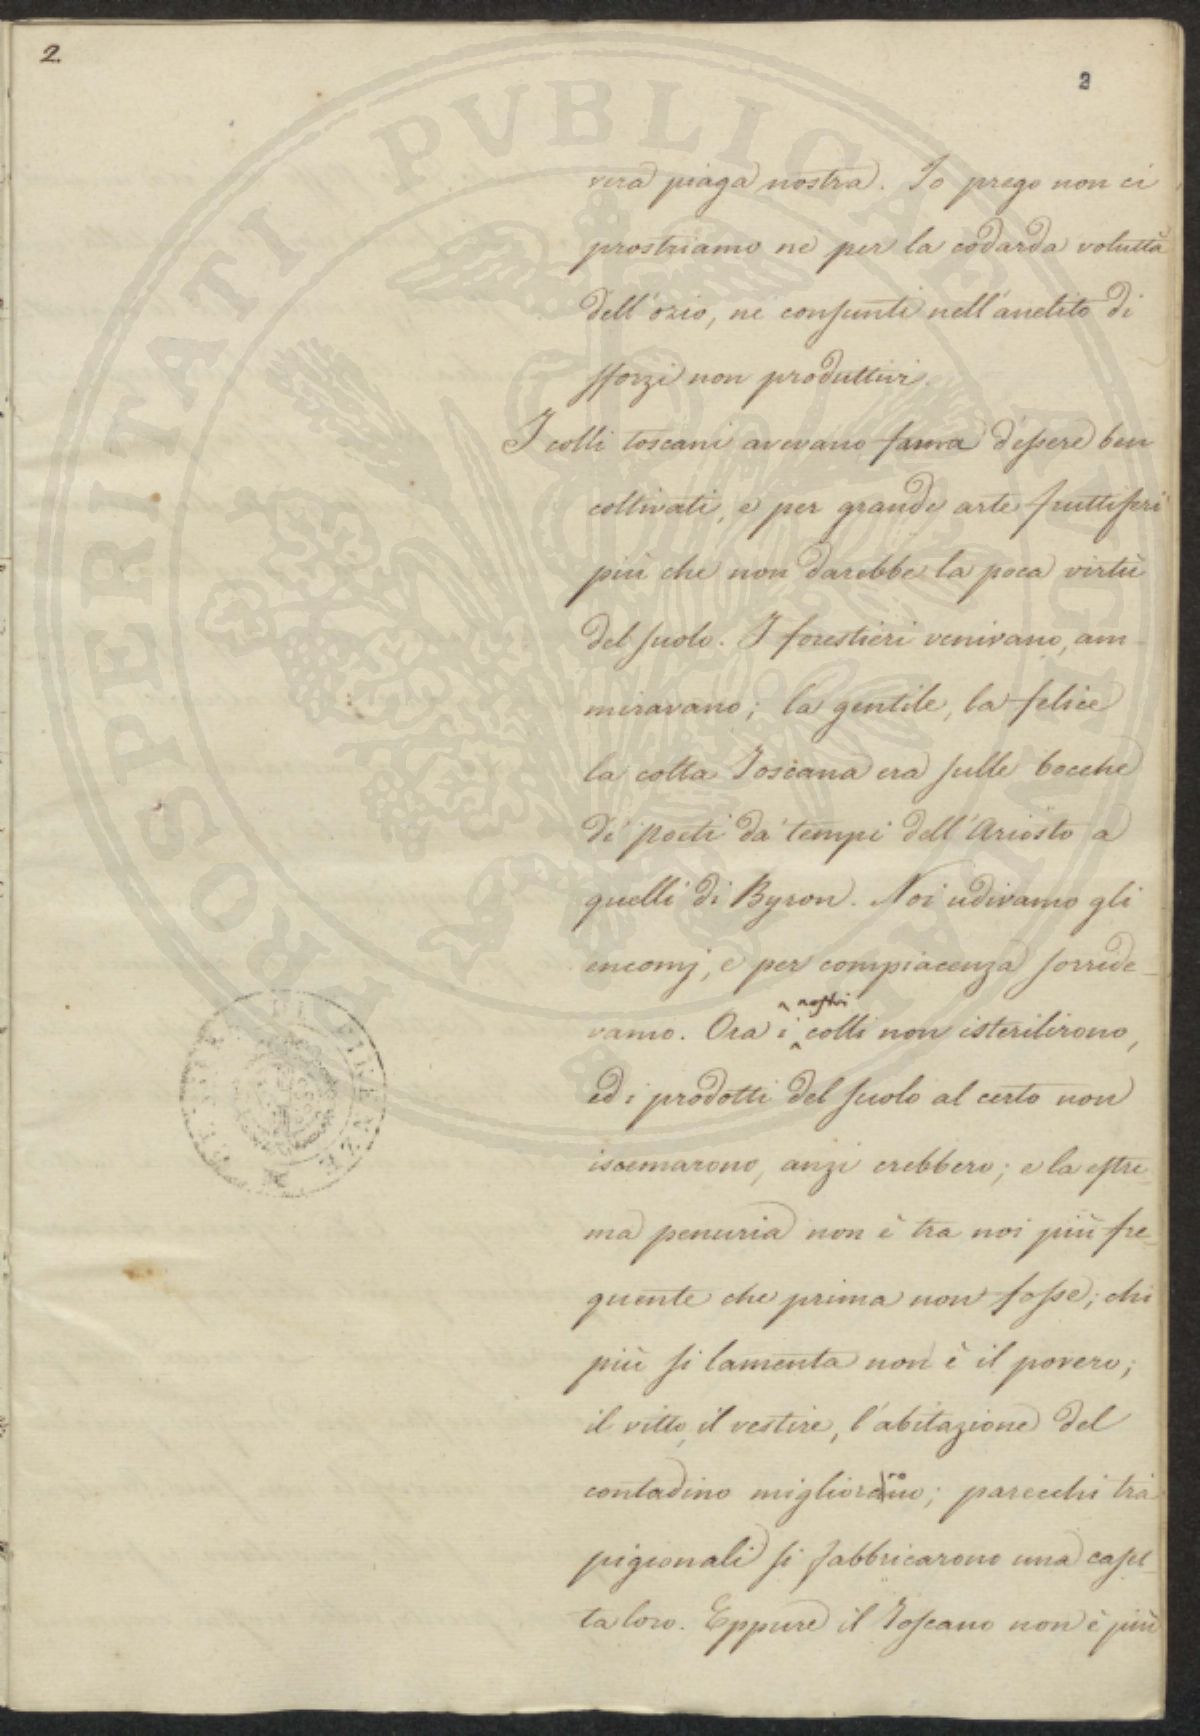 2.
2
vera piaga nostra. Io prego non ci
prostriamo ne per la codarda voluttà
dell'ozio, ne consunti nell'anelito di
sforzi non produttivi.
I colli toscani avevano fama d'essere ben
coltivati, e per grande arte fruttiferi
più che non darebbe la poca virtù
del suolo. I forestieri venivano, am-
miravano; la gentile, la felice
la colta Toscana era sulle bocche
de' poeti da' tempi dell'Ariosto a
quelli di Byron. Noi udivamo gli
encomj, e per compiacenza sorride-
vamo. Ora i nostri colli non isterilirono,
ed i prodotti del suolo al certo non
iscemarono, anzi crebbero; e la estre-
ma penuria non è tra noi più fre-
quente che prima non fosse; chi
più si lamenta non è il povero;
il vitto, il vestire, l'abitazione del
contadino migliorarono; parecchi tra
pigionali si fabbricarono una caset-
ta loro. Eppure il Toscano non è più
PROSPERITATI PVBLICAE AVGENDAE